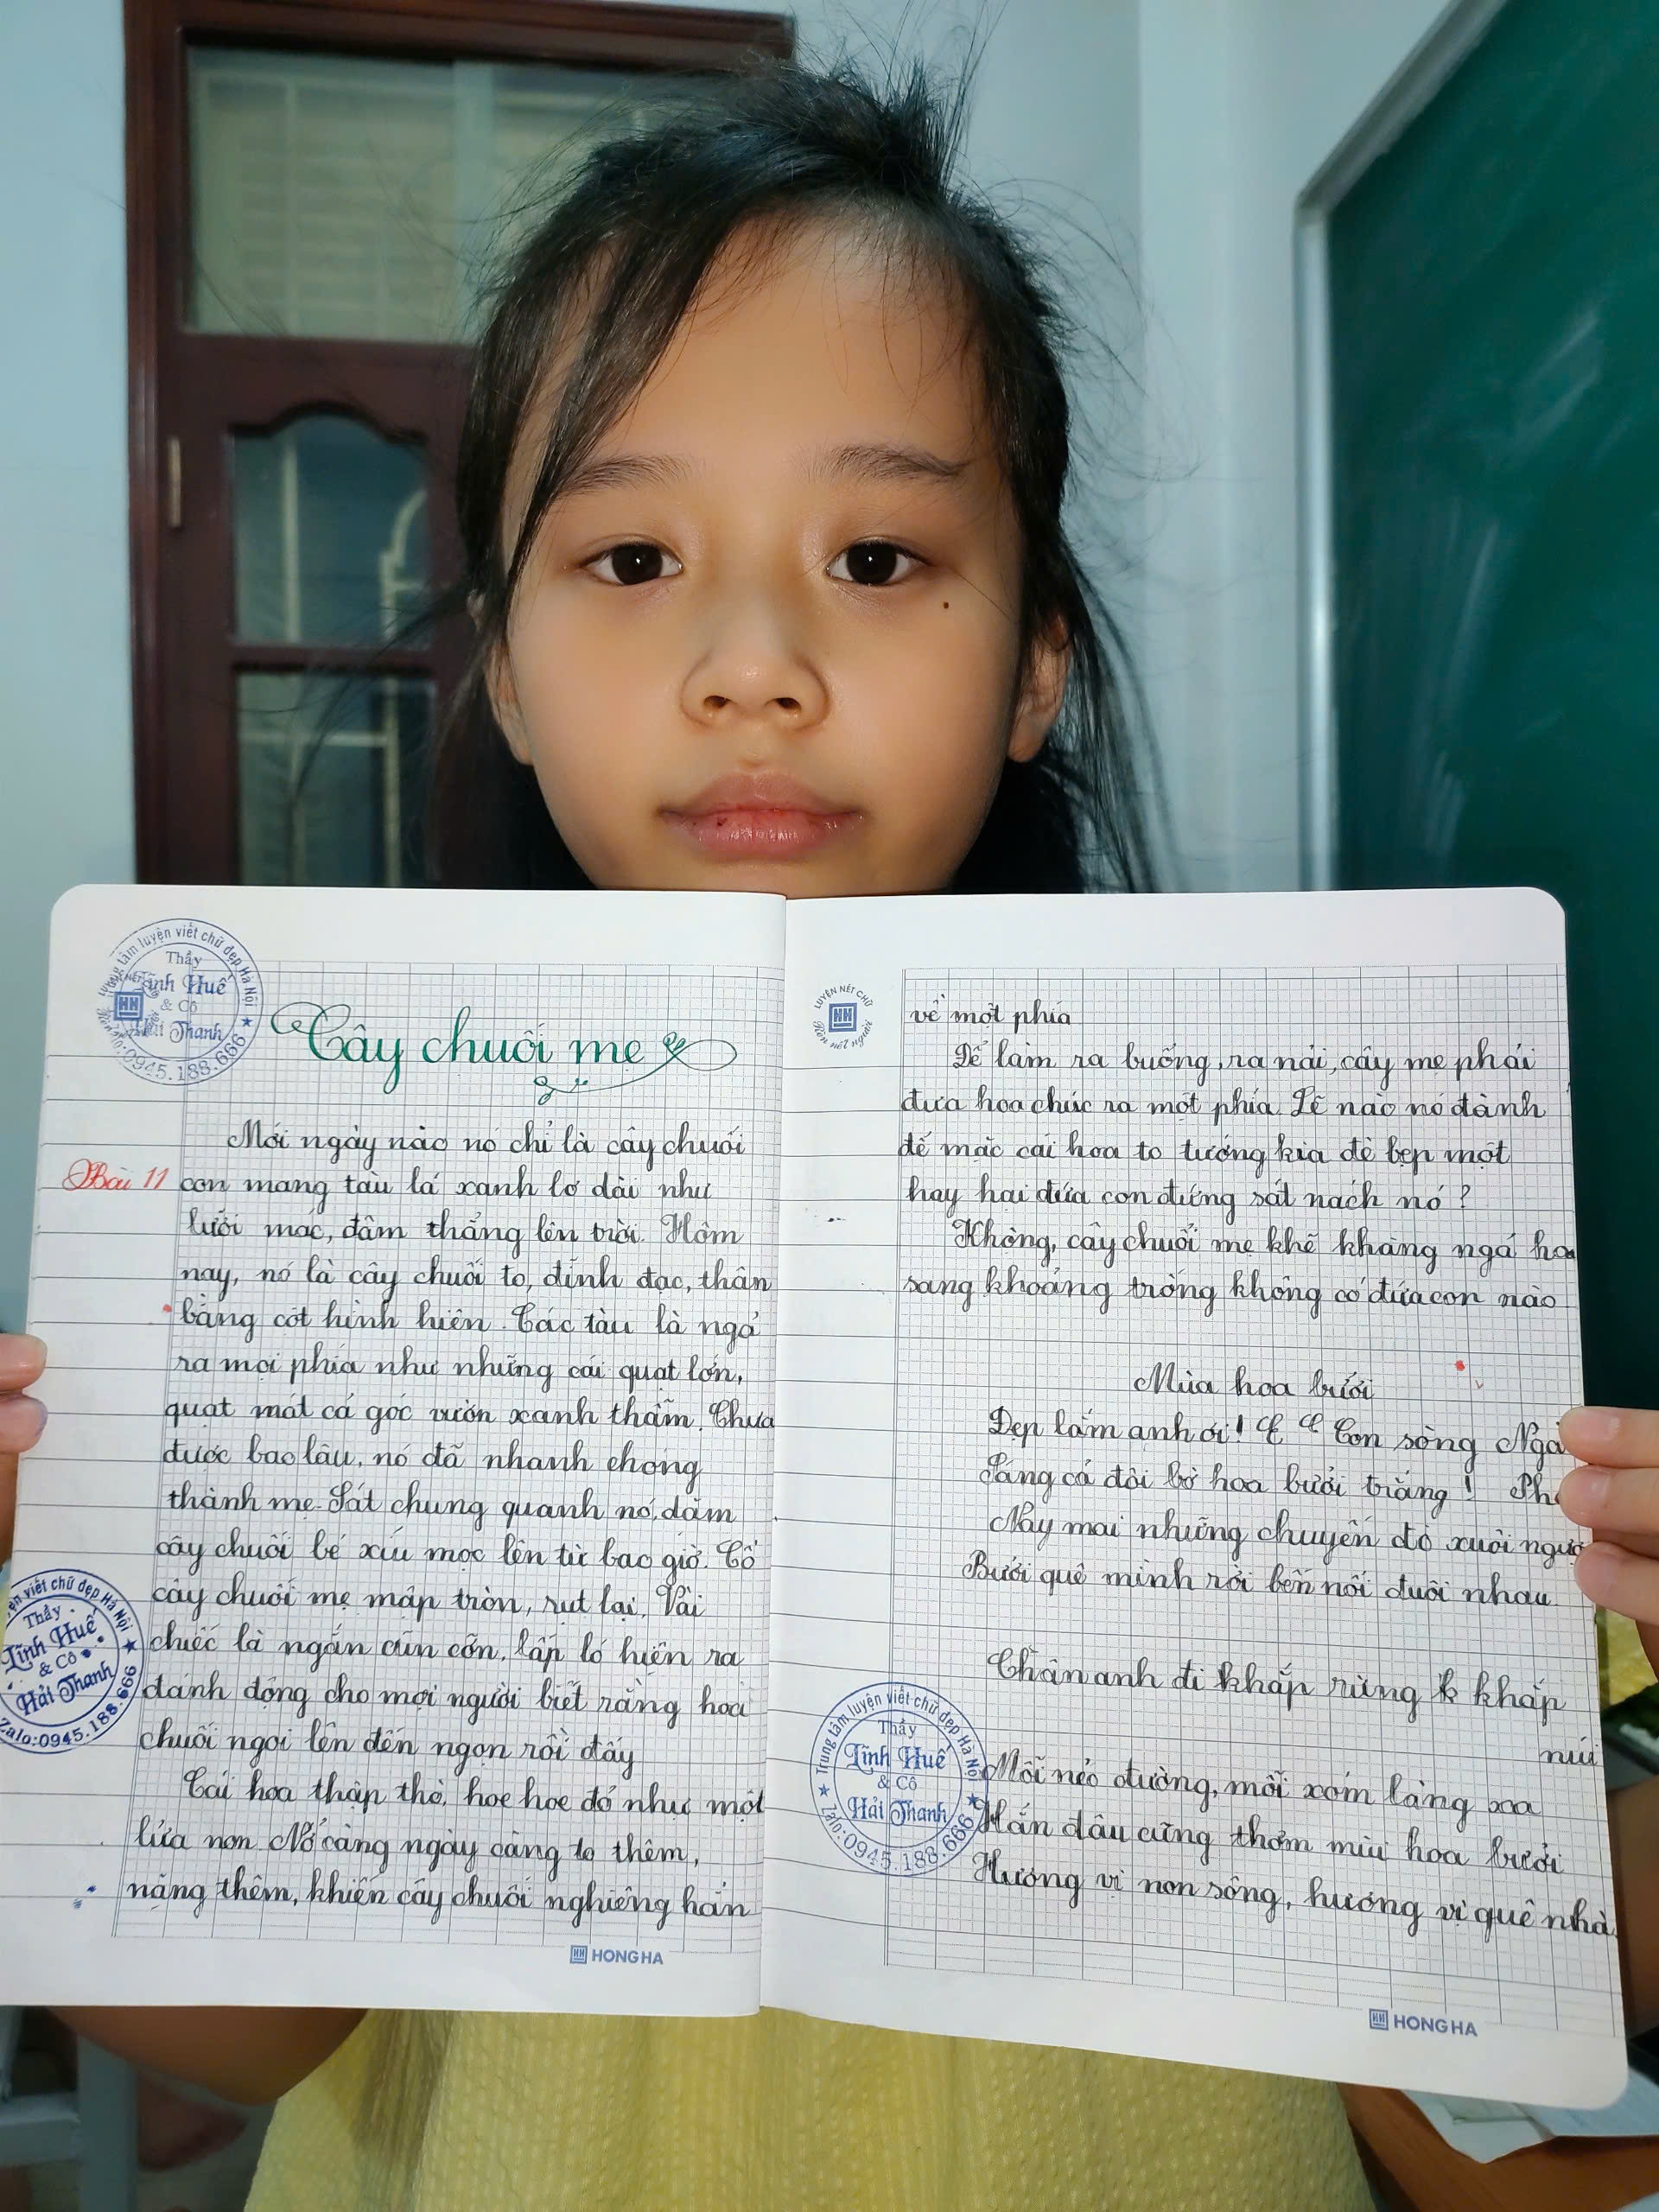 Trung tâm luyện viết chữ đẹp Hà Nội
Thầy
Lĩnh Huế
& Cô
Hải Thanh
0945.188.666
Cây chuối mẹ
Bài 11
Mới ngày nào nó chỉ là cây chuối
con mang tàu lá xanh lơ dài như
lưỡi mác, đâm thẳng lên trời. Hôm
nay, nó là cây chuối to, đĩnh đạc, thân
bằng cột hình hiên. Các tàu lá ngả
ra mọi phía như những cái quạt lớn,
quạt mát cả góc vườn xanh thẫm. Chưa
được bao lâu, nó đã nhanh chong
thành mẹ. Sát chung quanh nó, dăm
cây chuối bé xíu mọc lên từ bao giờ. Cổ
cây chuối mẹ mập tròn, rụt lại. Vài
chiếc lá ngắn cũn cỡn, lấp ló hiện ra
đánh động cho mọi người biết rằng hoa
chuối ngoi lên đến ngọn rồi đấy
Cái hoa thập thò, hoe hoe đỏ như một
lửa non Nó càng ngày càng to thêm,
nặng thêm, khiến cây chuối nghiêng hẳn
HONG HA
luyện viết chữ đẹp Hà Nội
Thầy
Lĩnh Huế
& Cô
Hải Thanh
Zalo:0945.188.666
LUYỆN NÉT CHỮ
HH
Rèn nết người
về một phía
Để làm ra buồng, ra nải, cây mẹ phải
đưa hoa chúc ra một phía. Lẽ nào nó đành
để mặc cái hoa to tướng kia đè bẹp một
hay hai đứa con đứng sát nách nó?
Không, cây chuối mẹ khẽ khàng ngả hoa
sang khoảng trống không có đứa con nào
Mùa hoa bưởi
Đẹp lắm anh ơi! Con sông
Sáng cả đôi bờ hoa bưởi trắng!
Nay mai những chuyến đò xuôi
Bưởi quê mình rời bến nối đuôi nhau.
Chân anh đi khắp rừng khắp
núi
Mỗi nẻo đường, mỗi xóm làng xa
Hẳn đâu cũng thơm mùi hoa bưởi
Hương vị non sông, hương vị quê nhà.
Trung tâm luyện viết chữ đẹp Hà Nội
Thầy
Lĩnh Huế
& Cô
Hải Thanh
Zalo:0945.188.666
HONG HA